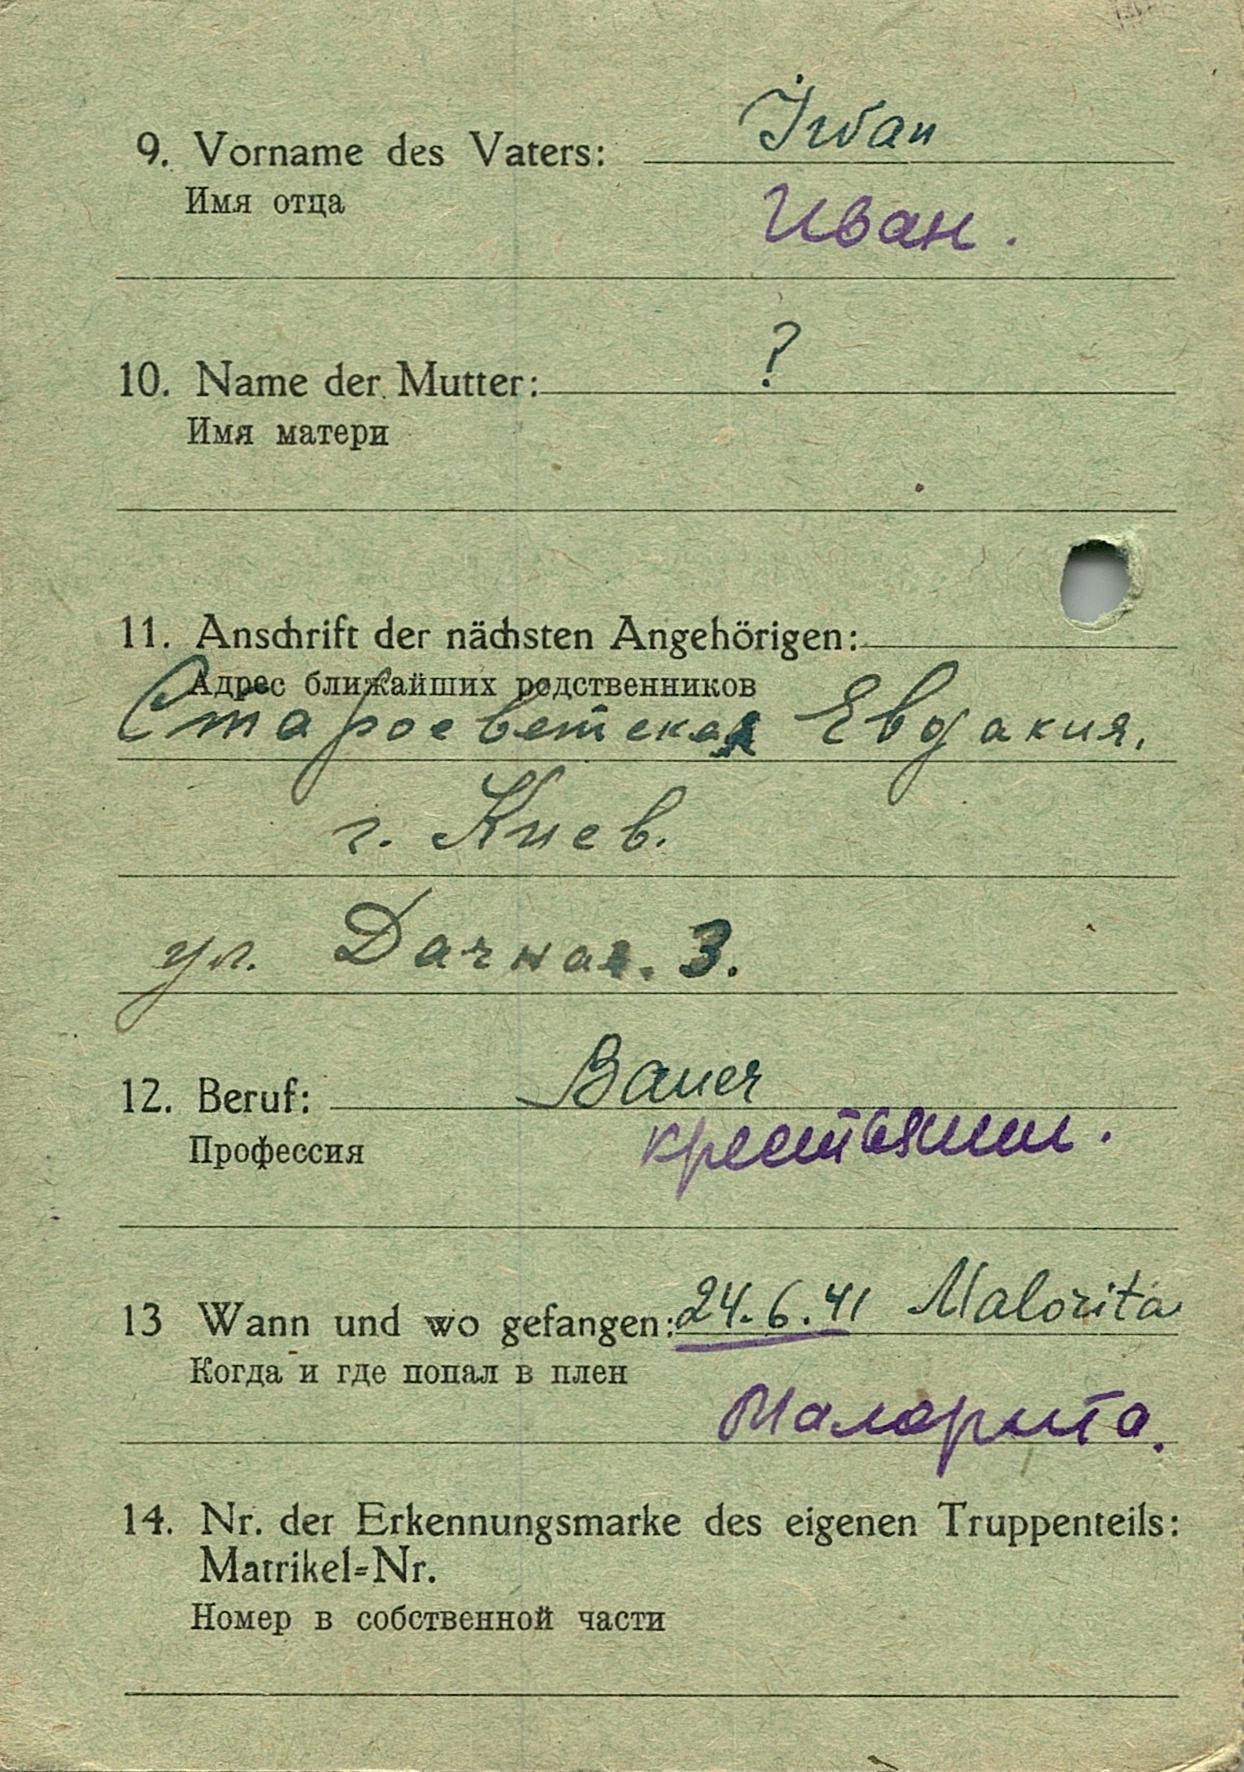 9. Vorname des Vaters: Iwan
Имя отца
Иван.
10. Name der Mutter: ?
Имя матери
11. Anschrift der nächsten Angehörigen:
Адрес ближайших родственников
Старосветская Евдакия,
г. Киев.
ул. Дачная. 3.
12. Beruf: Bauer
Профессия
крестьянин.
13 Wann und wo gefangen: 24.6.41 Malorita
Когда и где попал в плен
Малорыта.
14. Nr. der Erkennungsmarke des eigenen Truppenteils:
Matrikel=Nr.
Номер в собственной части